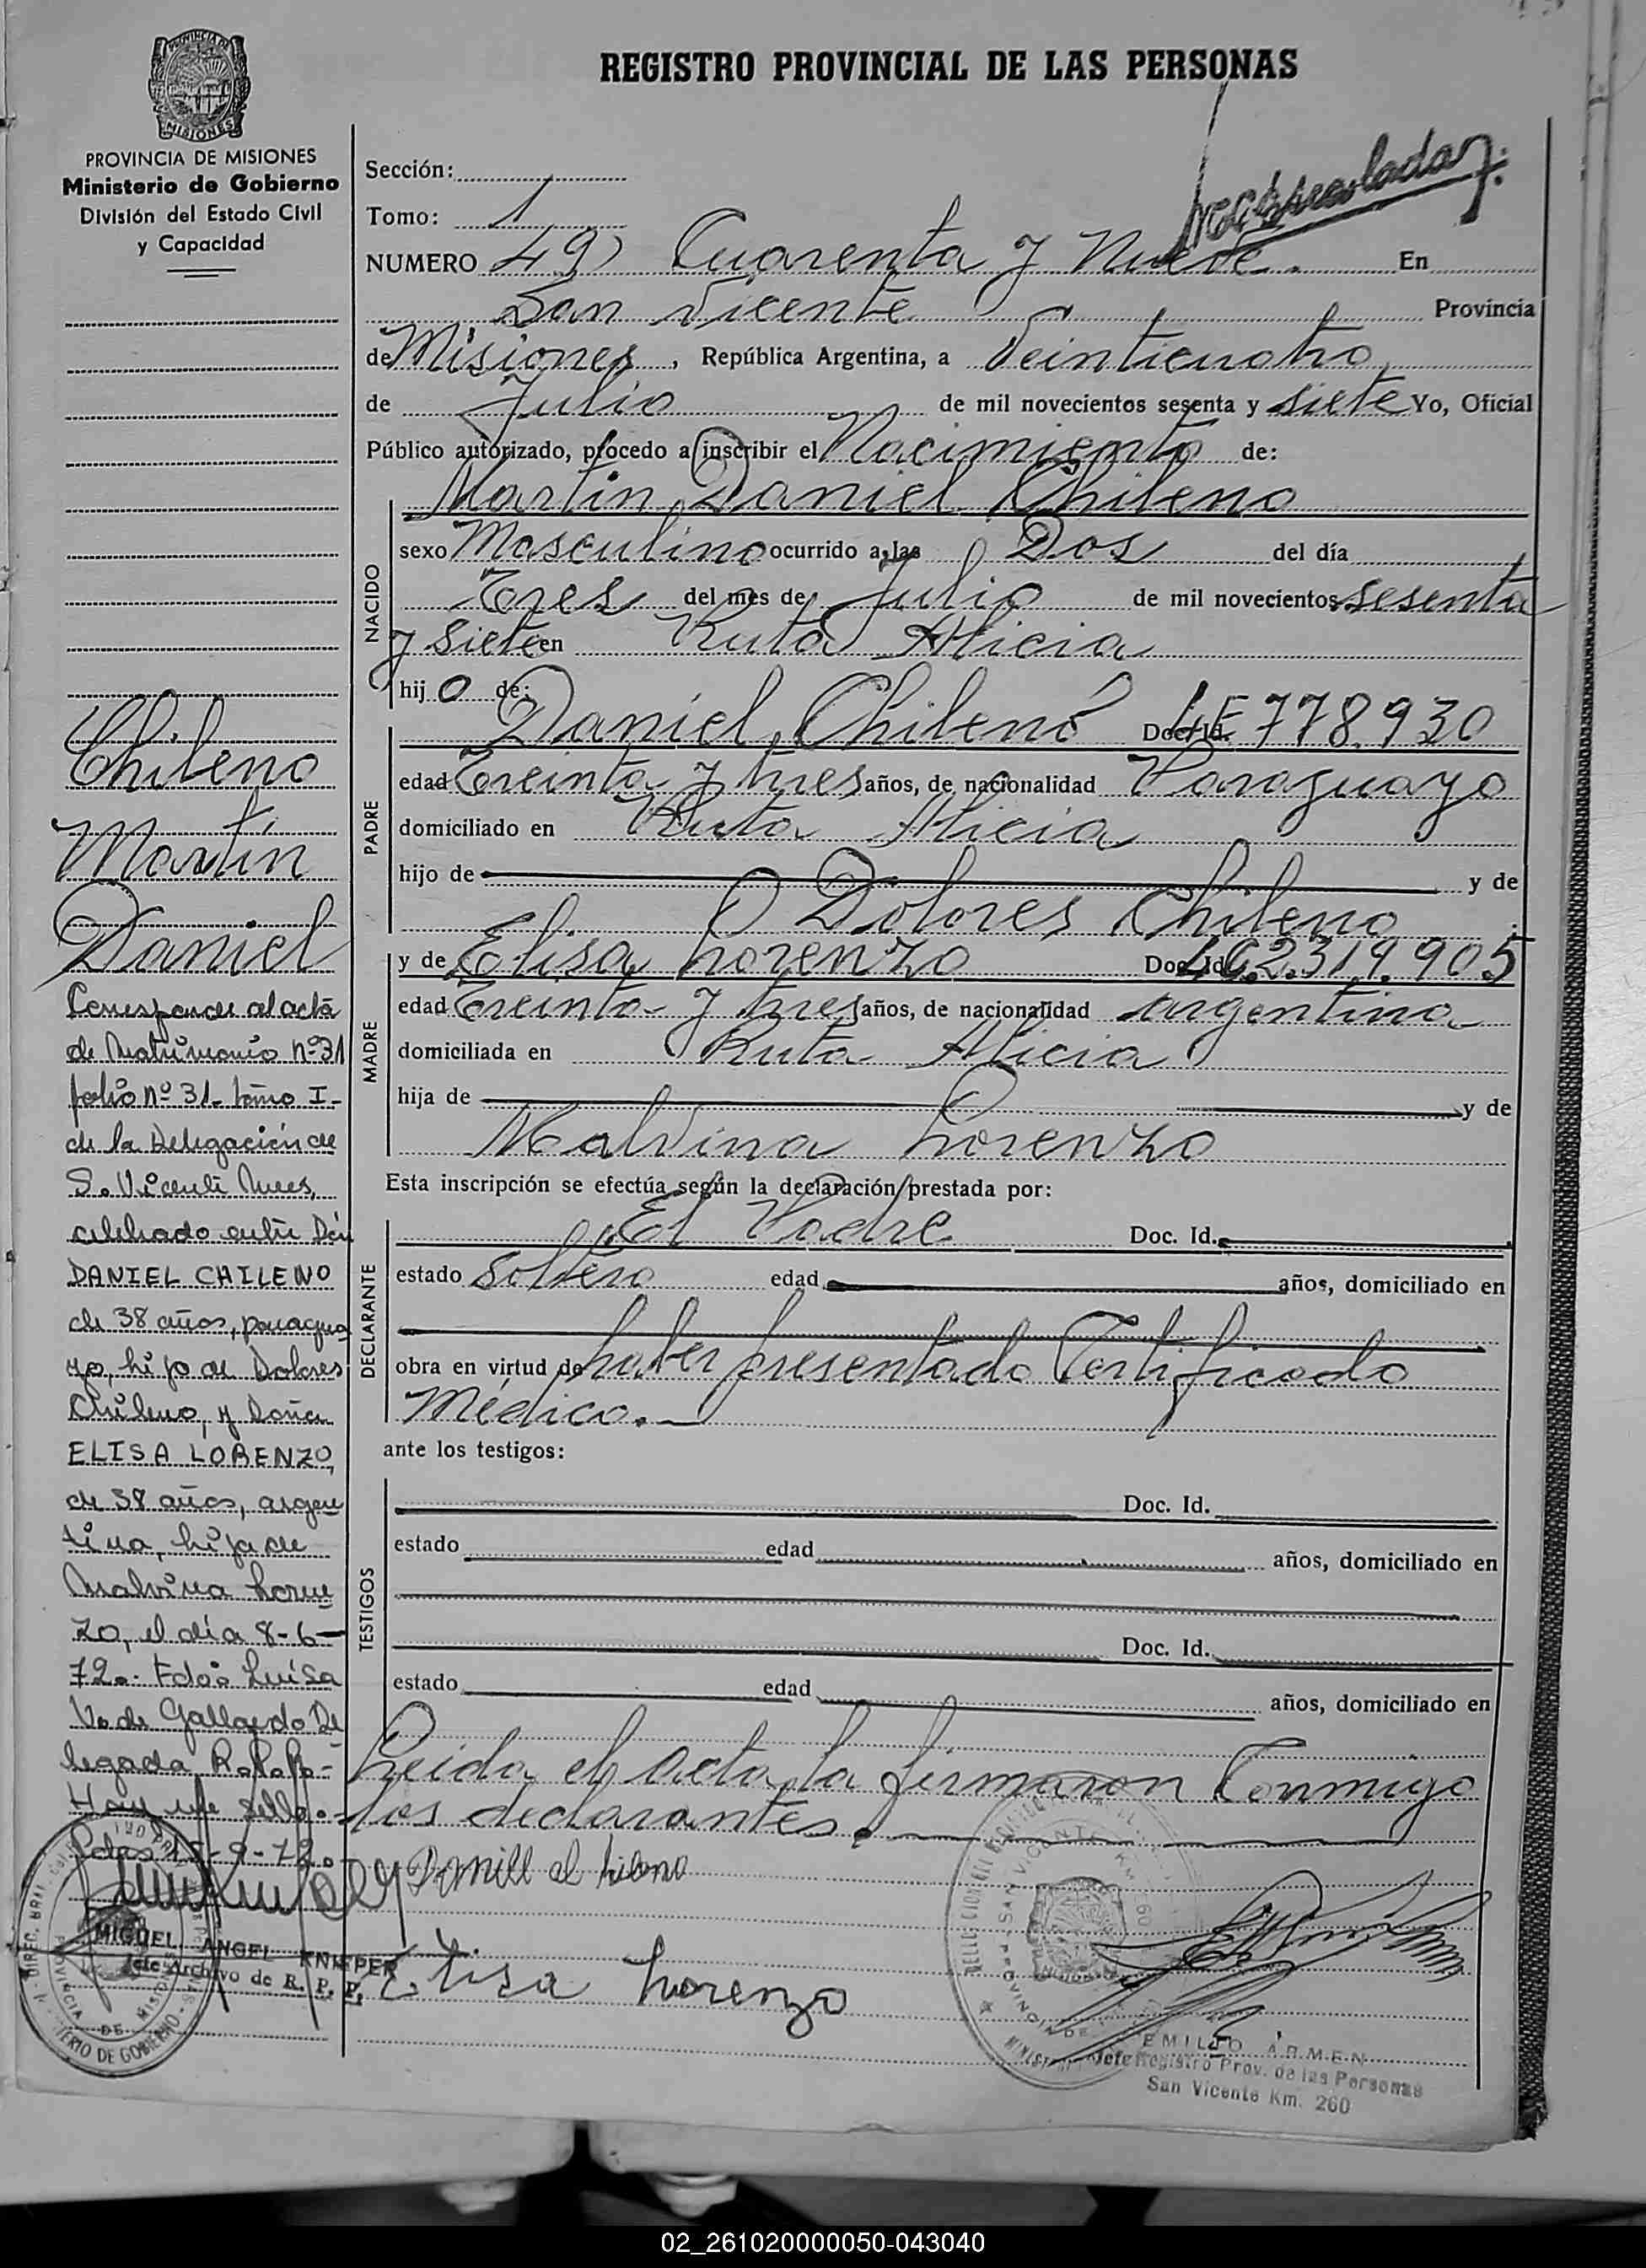 REGISTRO PROVINCIAL DE LAS PERSONAS
PROVINCIA DE MISIONES
MISIONES
PROVINCIA DE MISIONES
Ministerio de Gobierno
División del Estado Civil
y Capacidad
Sección:
Tomo: 1
NUMERO 49) Cuarenta y Nueve. En
San Vicente Provincia
de Misiones, República Argentina, a Veinticuatro
de Julio de mil novecientos sesenta y siete Yo, Oficial
Público autorizado, procedo a inscribir el Nacimiento de:
Martin Daniel Chileno
NACIDO
sexo Masculino ocurrido a las Dos del día
Tres del mes de Julio de mil novecientos sesenta
y siete en Ruta Alicia
hijo de:
PADRE
Daniel Chileno Doc. Id. 778.930
edad Treinta y tres años, de nacionalidad Paraguayo
domiciliado en Ruta Alicia
hijo de y de
Dolores Chileno
MADRE
y de Elisa Lorenzo Doc. Id. LC.2.319.905
edad Treinta y tres años, de nacionalidad argentina
domiciliada en Ruta Alicia
hija de y de
Malvina Lorenzo
Esta inscripción se efectúa según la declaración prestada por:
DECLARANTE
El Padre Doc. Id.
estado Soltero edad años, domiciliado en
obra en virtud de haber presentado Certificado
Médico.
ante los testigos:
TESTIGOS
Doc. Id.
estado edad años, domiciliado en
Doc. Id.
estado edad años, domiciliado en
Leida el acta, la firmaron Conmigo
los declarantes.
Elisa Lorenzo
EMILIO ARMEN
Jefe Registro Prov. de las Personas
San Vicente Km. 260
Chileno
Martín
Daniel
Corresponde al acta
de Matrimonio nº 31
folio nº 31- tomo I-
de la Delegación de
S. Vicente Mnes,
celebrado entre Dón
DANIEL CHILENO
de 38 años, paragua
yo, hijo de Dolores
Chileno, y Doña
ELISA LORENZO,
de 38 años, argen
tina, hija de
Malvina Loren
zo, el día 8-6-
72.- Fdo: Luisa
V. de Gallardo De
legada R.P.P.-
Hay un sello.-
-9-72.
MIGUEL ANGEL KNIEPER
Jefe Archivo de R. P. P.
02_261020000050-043040